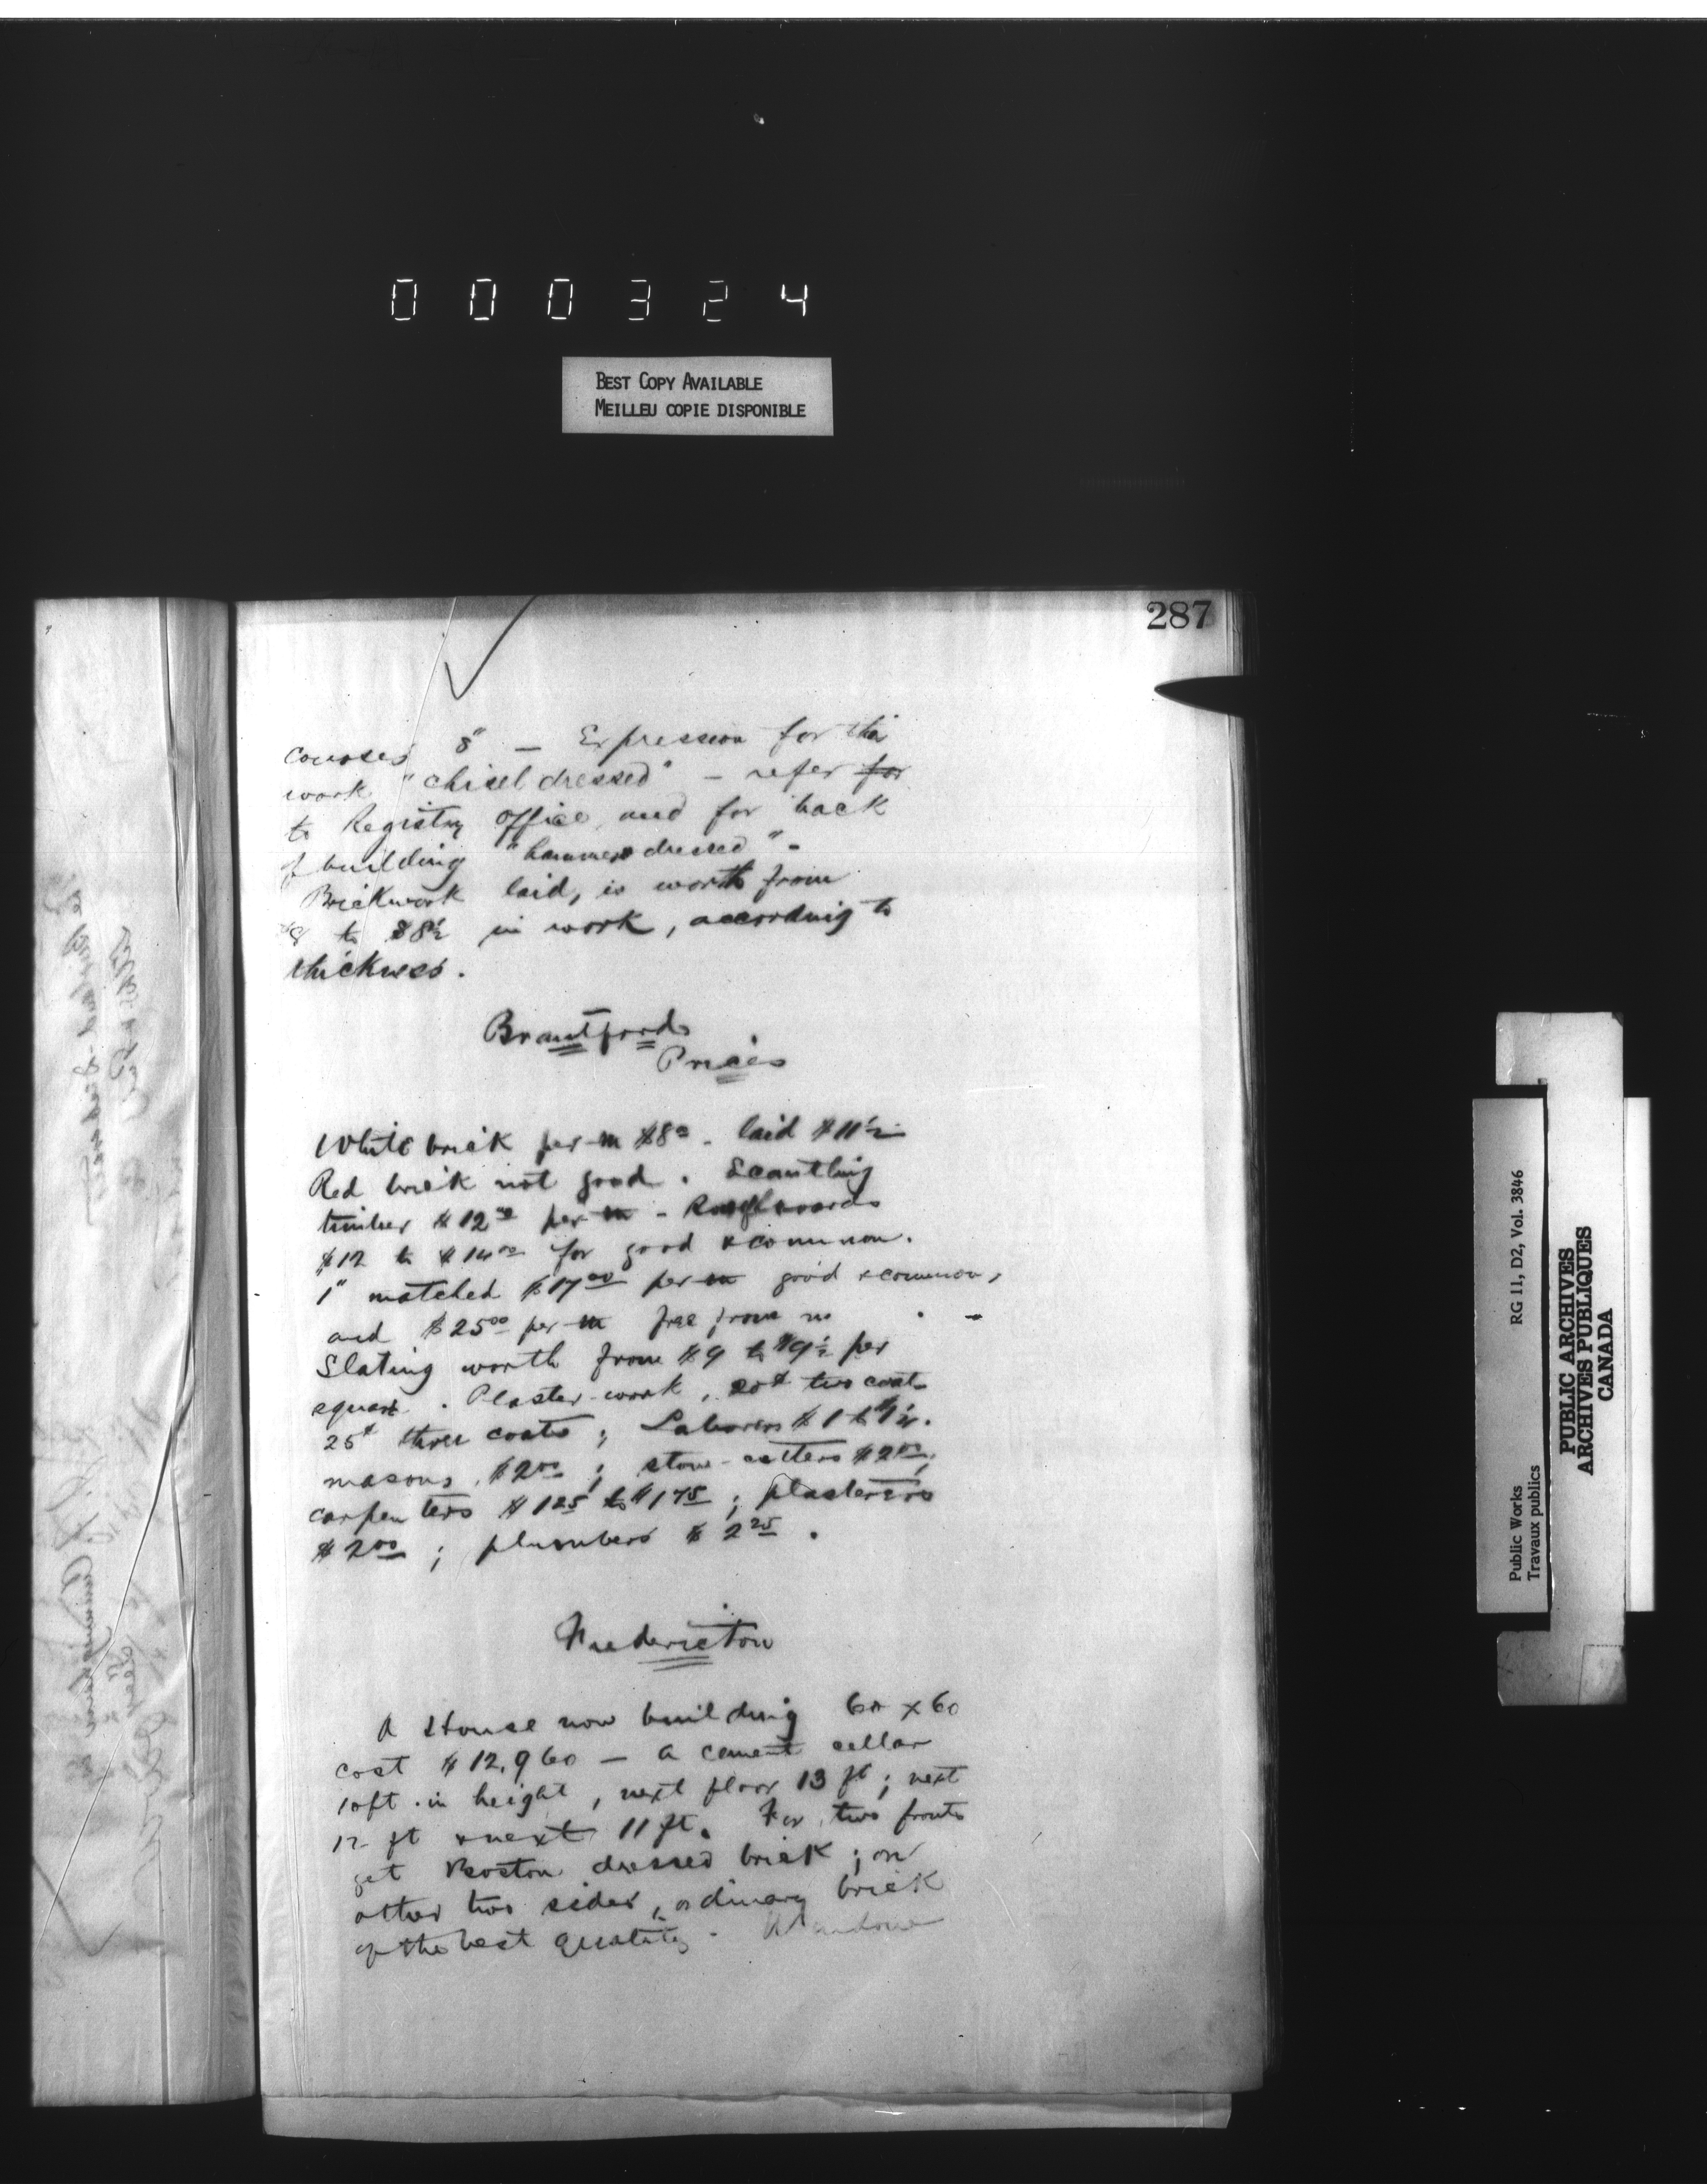 000324
BEST COPY AVAILABLE
MEILLEU COPIE DISPONIBLE
287
courses 8" — Expression for this
work "chisel dressed" — refer for
to Registry Office and for back
of building "hammer dressed".
Brickwork laid, is worth from
$8 to $8½ in work, according to
thickness.
Brantford
Prices
White brick per m $8⁰ - laid $11½
Red brick not good. Scantling
timber $12⁰⁰ per m - Rough boards
$12 to $14⁰⁰ for good & common.
1" matched $17⁰⁰ per m good & common,
and $25⁰⁰ per m free from
Slating worth from $9 to $9½ per
square. Plaster-work, 20¢ two coats
25¢ three coats; Laborers $1 to
masons, $2⁰⁰; stone-cutters $2⁰⁰;
carpenters $1 25 to $1 75; plasterers
$2⁰⁰; plumbers $2 25.
Fredericton
A House now building 60 x 60
cost $12,960 — a cement cellar
10 ft. in height, next floor 13 ft; next
12 ft & next 11 ft. For two fronts
get Boston dressed brick; on
other two sides, ordinary brick
of the best quality -
Public Works
Travaux publics
RG 11, D2, Vol. 3846
PUBLIC ARCHIVES
ARCHIVES PUBLIQUES
CANADA